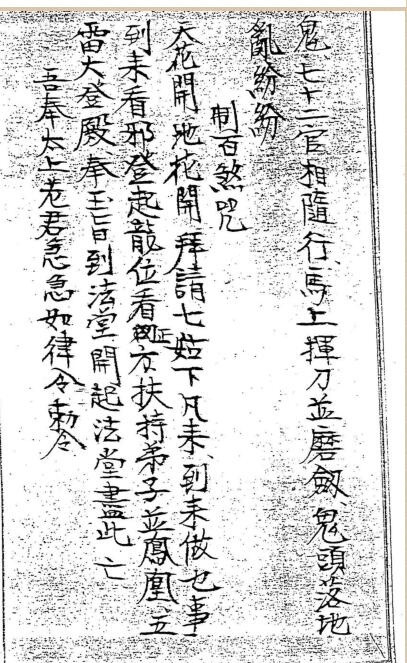 鬼、七十二官相隨行、馬上揮刀並磨劔、鬼頭落地
亂紛紛
制百煞咒
天花開地花開拜請七姑下凡来、到来做乜事
到来看邪登起龍位看四正方扶持弟子並鳳凰五
雷大登殿奉玉旨到法堂開起法堂盡此亡
吾奉太上老君急急如律令勅令